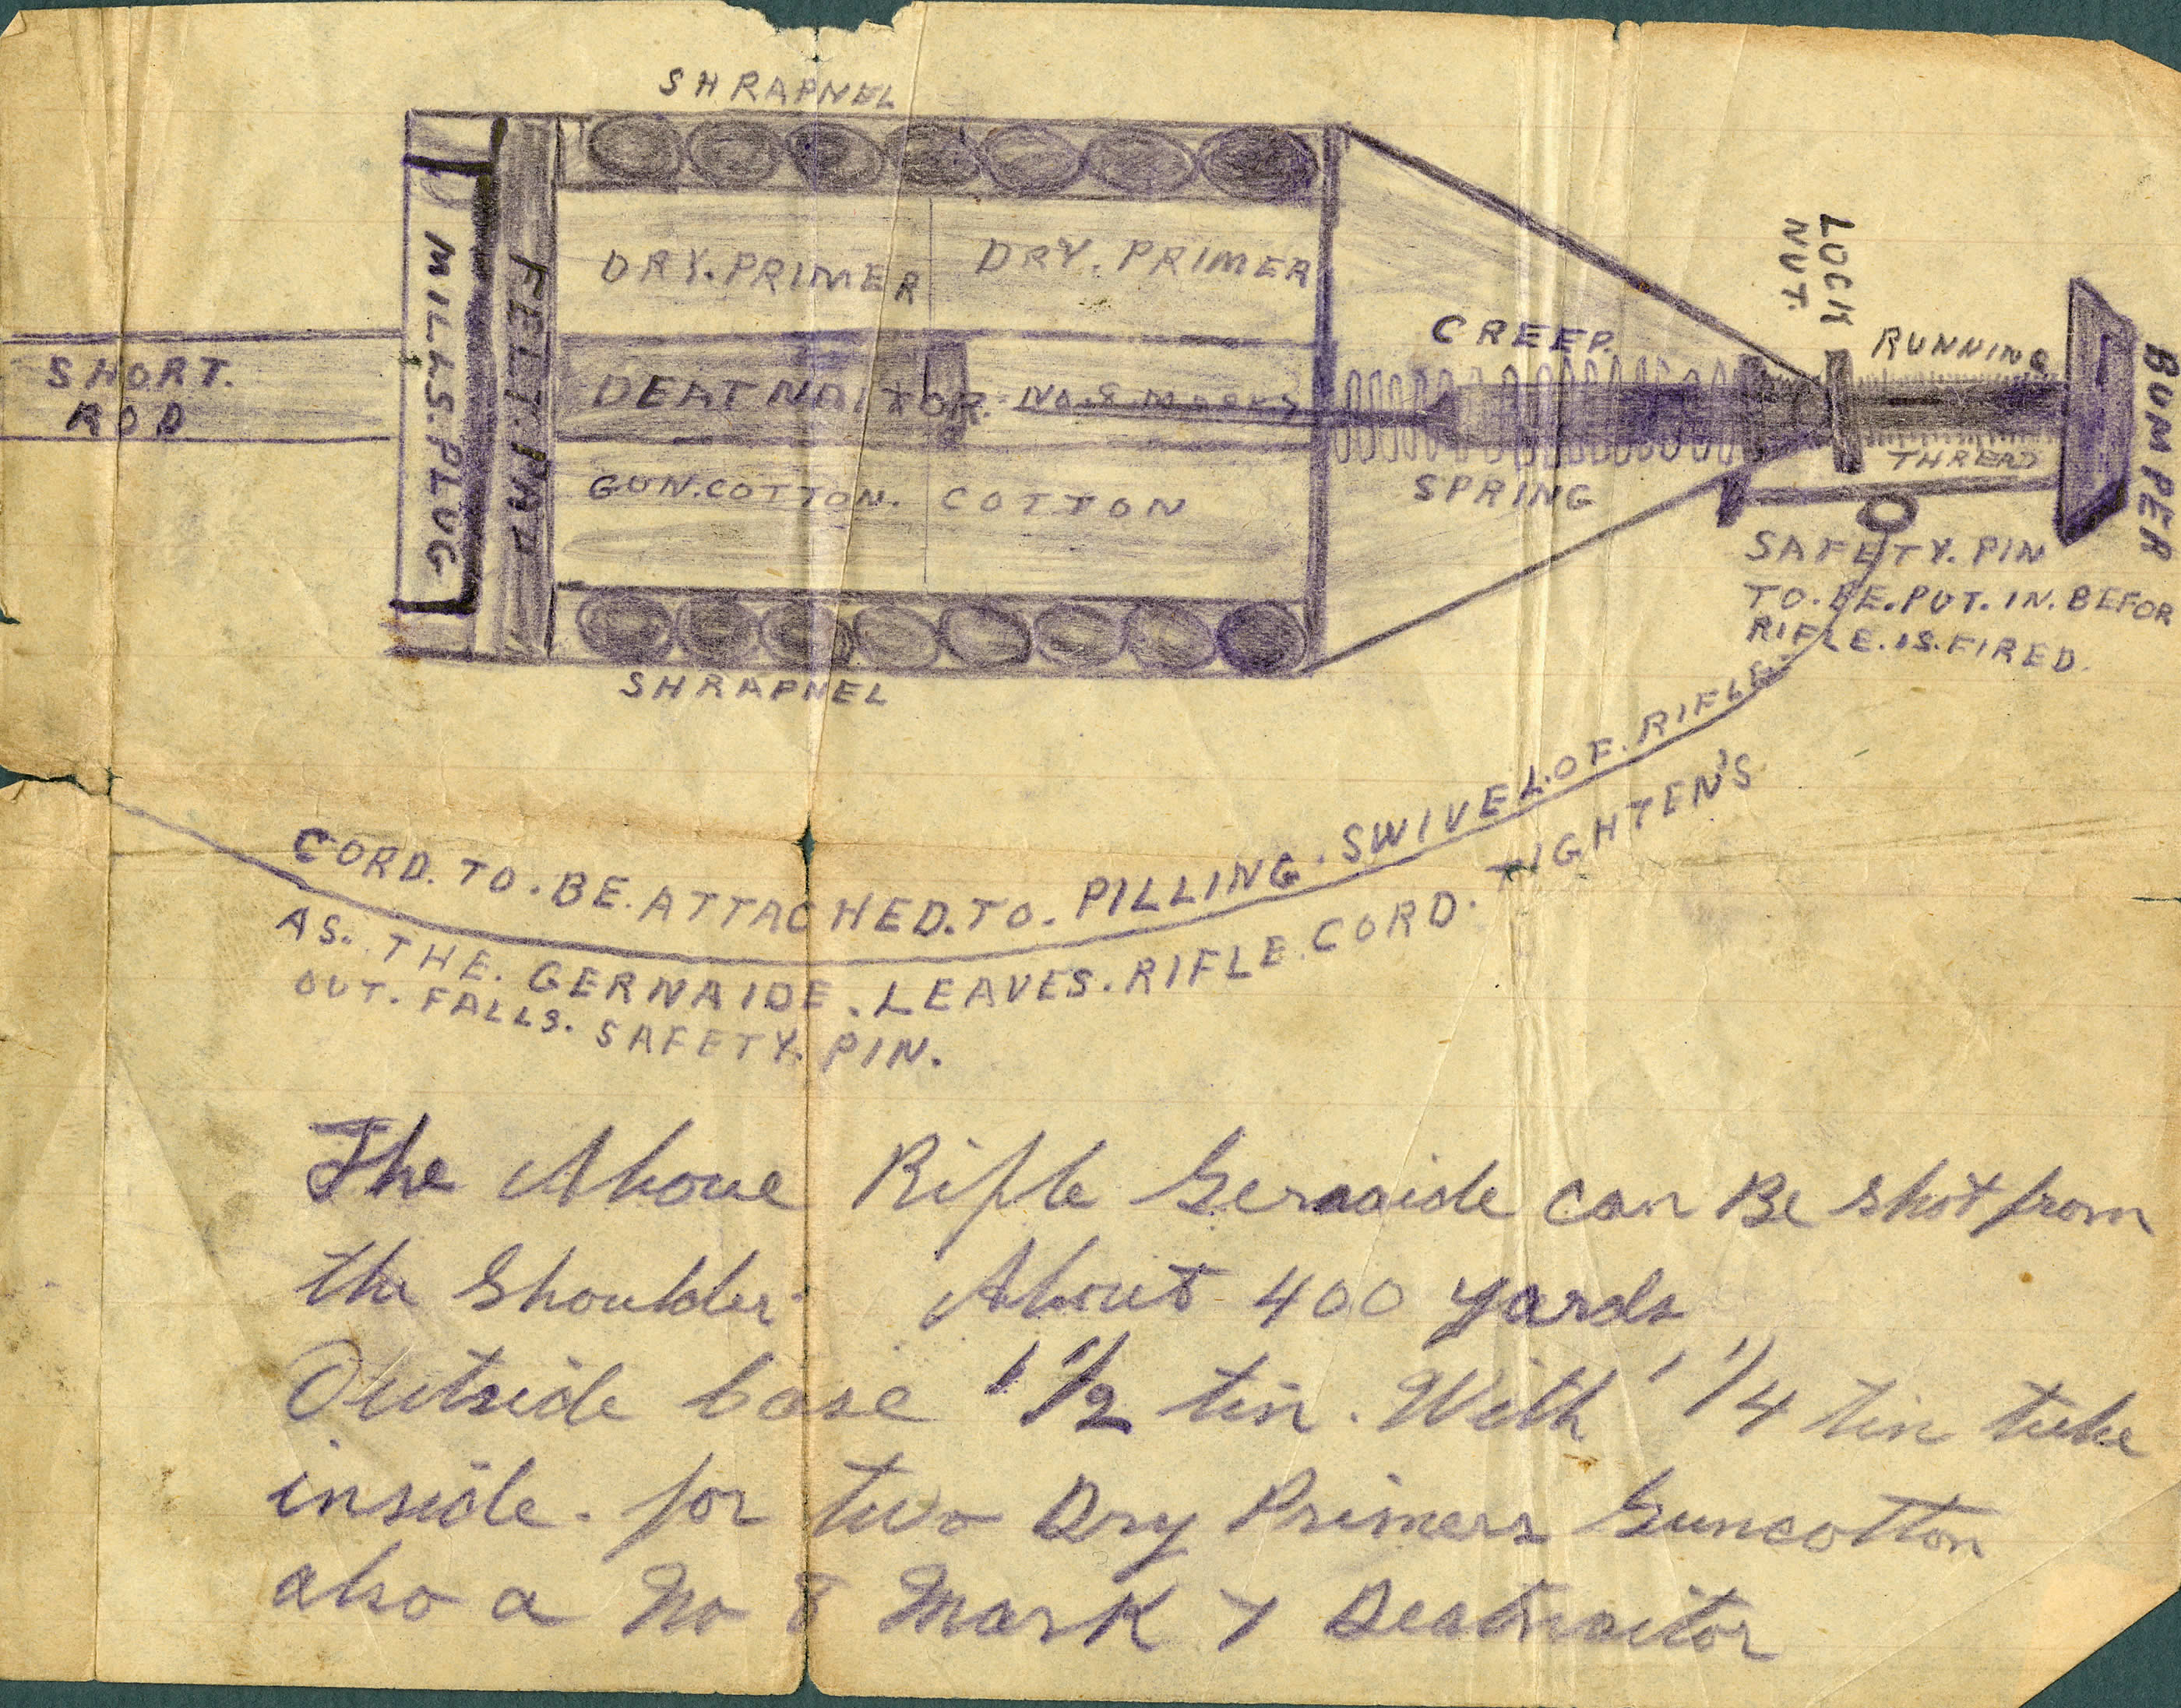 SHRAPNEL
LOCK
NUT.
DRY.PRIMER
DRY.PRIMER
MILLS.PLUG
FELT.PAD
CREEP.
RUNNING
SHORT.
ROD
DEATNAITOR. No.8 Mark 7
BUMPER
THREAD
GUN.COTTON. COTTON
SPRING
SAFETY.PIN
TO.BE.PUT.IN.BEFOR
RIFLE.IS.FIRED.
SHRAPNEL
CORD.TO.BE.ATTACHED.TO.PILLING.SWIVEL.OF.RIFLE.
AS.THE.GERNAIDE.LEAVES.RIFLE.CORD.TIGHTEN'S
OUT.FALLS.SAFETY.PIN.
The Above Rifle Gernaide can Be shot from
the Shoulder About 400 yards
Outside base 1 1/2 tin. With 1 1/4 tin tube
inside. for two Dry Primers Guncotton
also a No 8 Mark 7 Deatnaitor